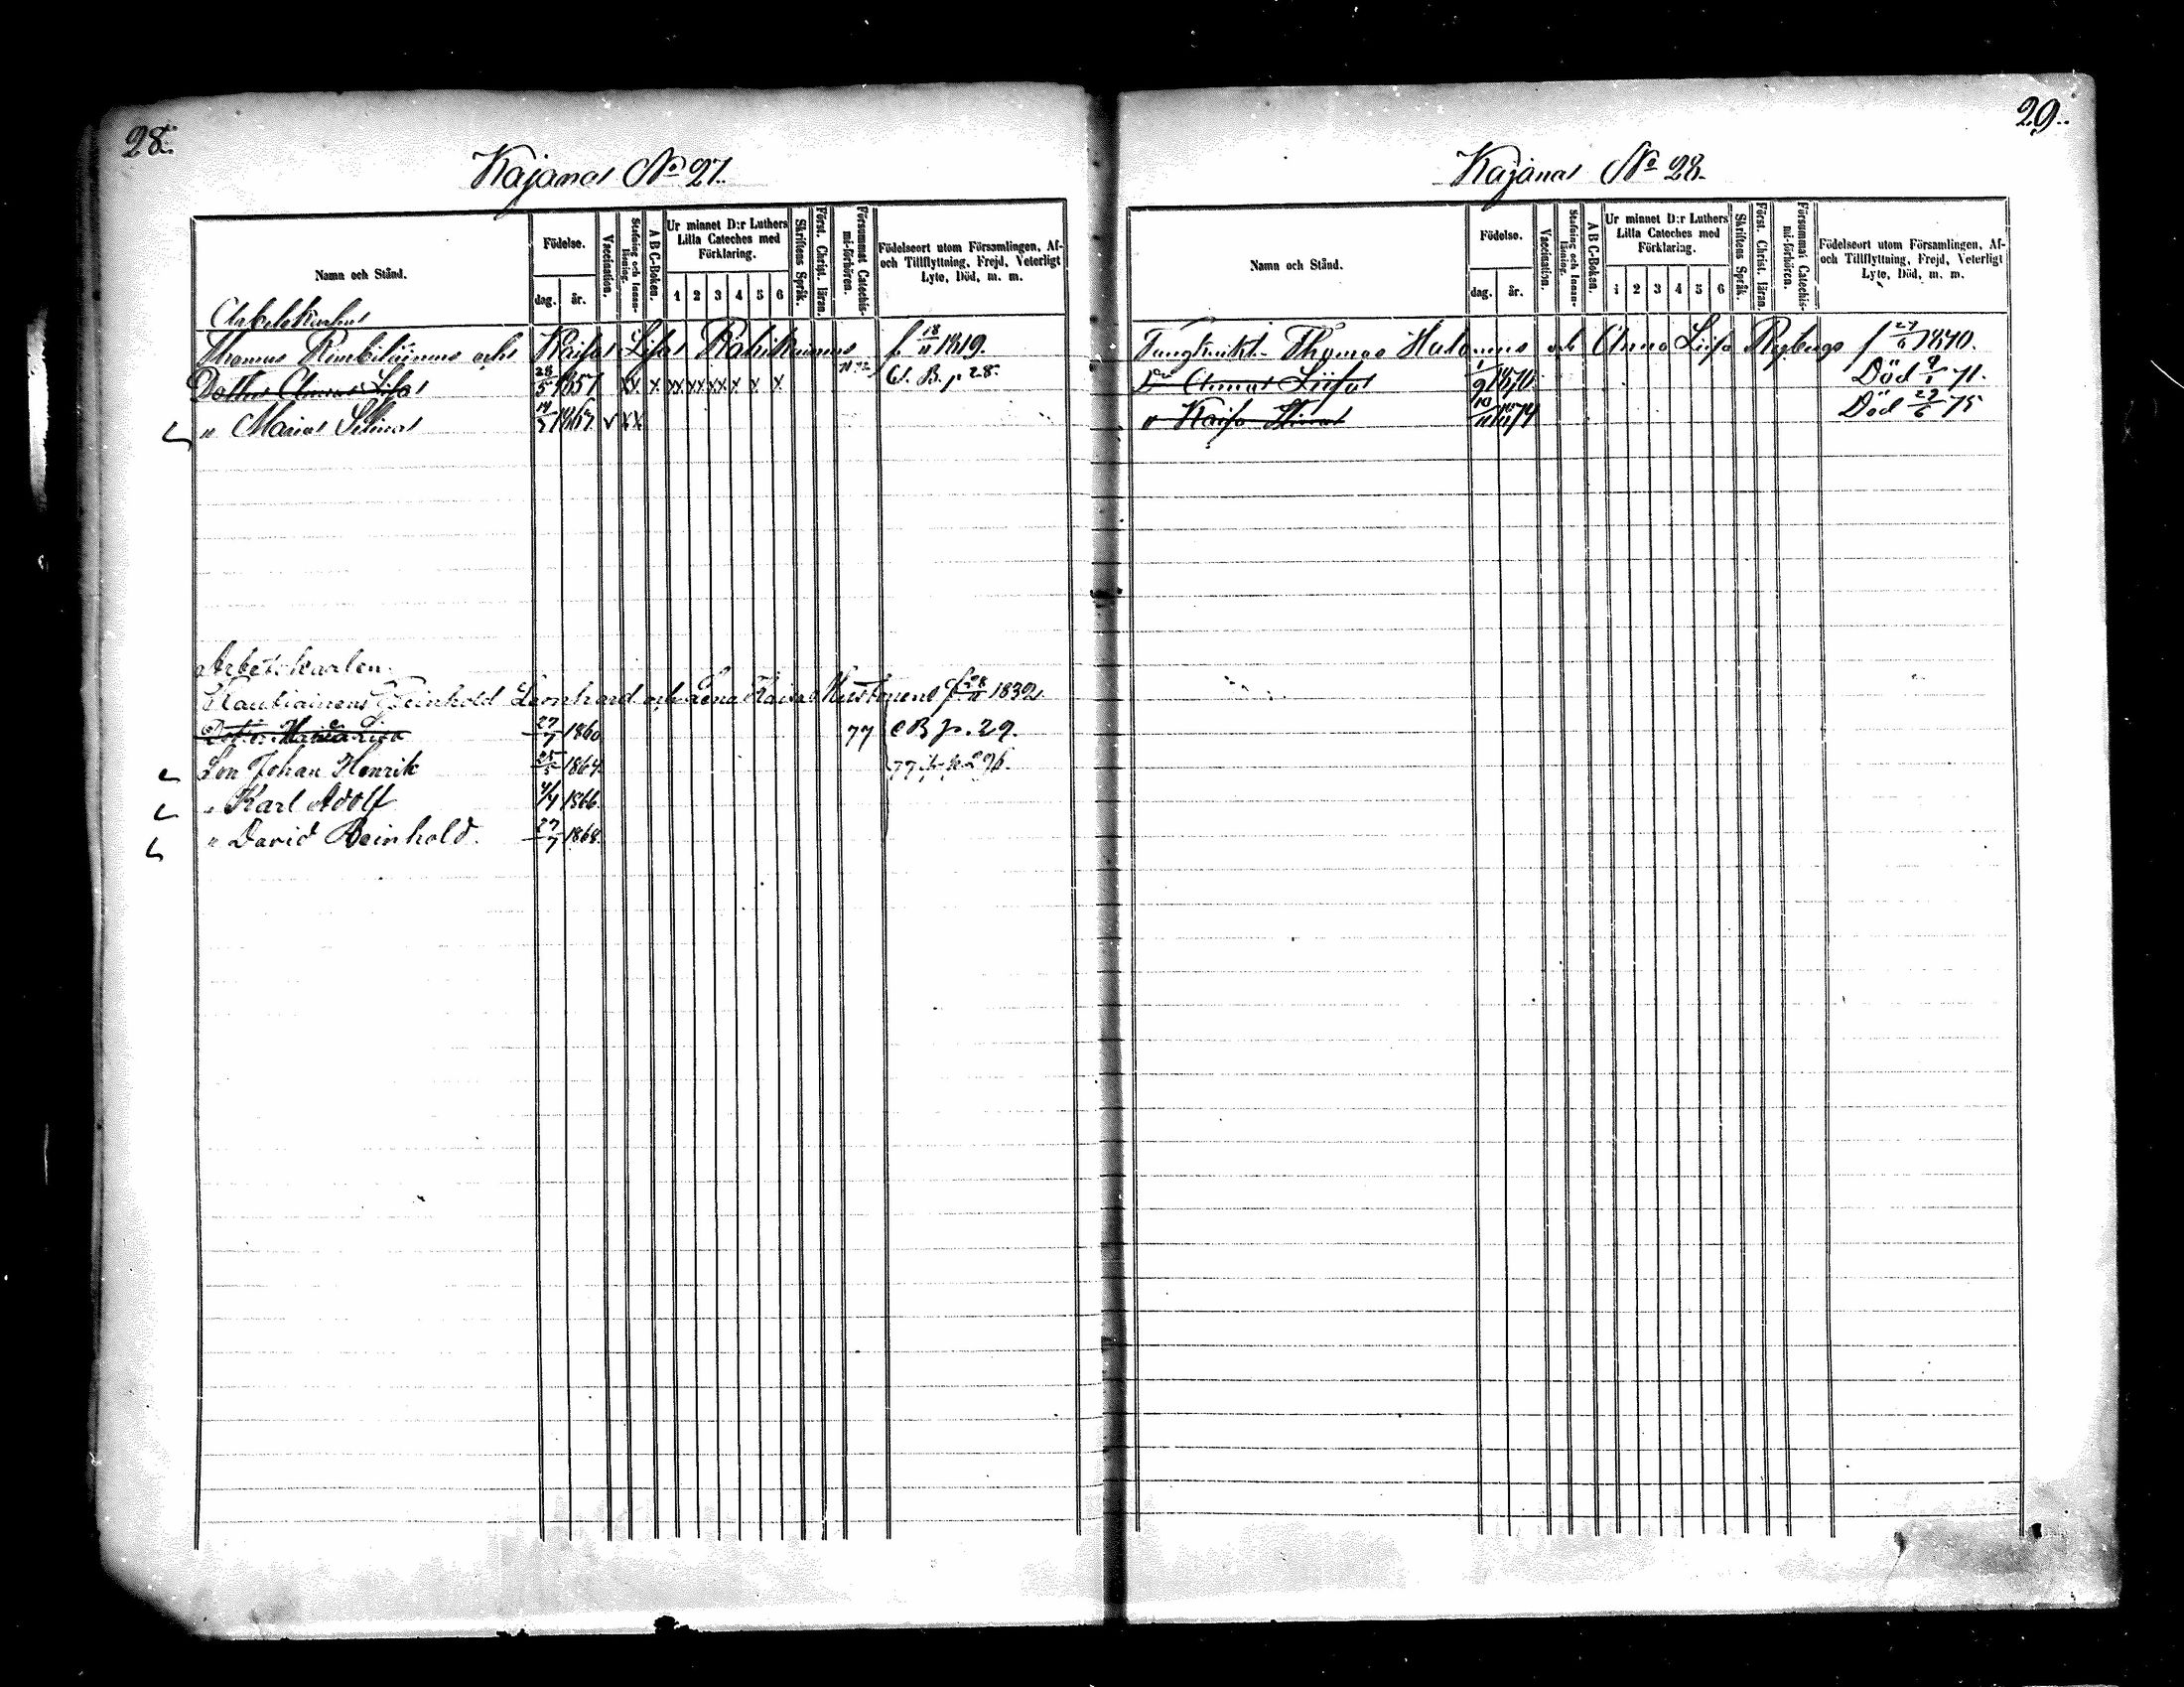 28.
Kajana No 27.
Namn och Stånd.
Födelse.
dag.
år.
Vaccination.
Stafning och Innan-läsning.
A B C-Boken.
Ur minnet D:r Luthers Lilla Cateches med Förklaring.
1 2 3 4 5 6
Skriftens Språk.
Först. Christ. läran.
Försummat Catechis-mi-förhören.
Födelseort utom Församlingen, Af- och Tillflyttning, Frejd, Veterligt Lyte, Död, m. m.
Thomas och Kaisa Lisa f. 18/11 1819.
Dotter Anna Lisa 28/5 1851 xx x xx xx xx x x x C. B. p. 28.
" Maria 1867 v xx
Arbetskarlen
Reinhold Leonhard och Lena Kaisa f 28/11 1832
Dotter Maria 27/7 1860 77 CB p. 29.
Son Johan Henrik 25/5 1864
" Karl Adolf 4/4 1866
" David Reinhold. 27/7 1868
29.
Kajana No 28.
Namn och Stånd.
Födelse.
dag.
år.
Vaccination.
Stafning och Innan-läsning.
A B C-Boken.
Ur minnet D:r Luthers Lilla Cateches med Förklaring.
1 2 3 4 5 6
Skriftens Språk.
Först. Christ. läran.
Försummat Catechis-mi-förhören.
Födelseort utom Församlingen, Af- och Tillflyttning, Frejd, Veterligt Lyte, Död, m. m.
Thomas och Anna Liisa f 1840.
Anna Liisa 1/9 1870 Död 9/1 71.
" Kaisa 10/11 1874 Död 27/6 75